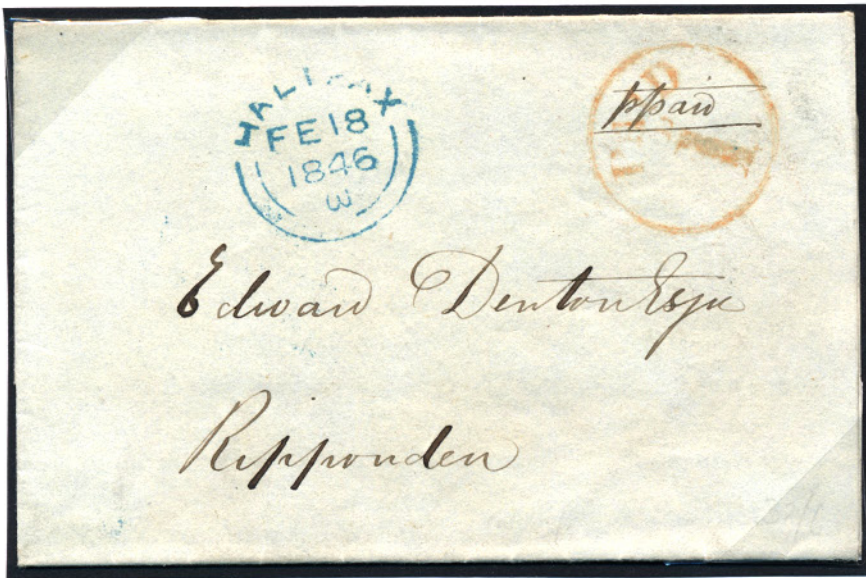 HALIFAX
FE 18
1846
3
PAID
1
ppaid
Edward Denton Esqr
Ripponden